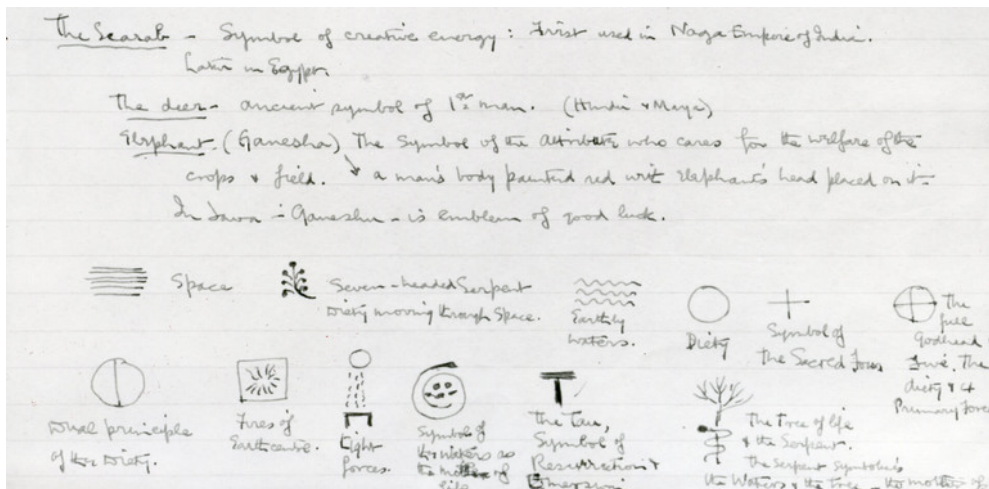 The Scarab - Symbol of creative energy: First used in Naga Empire of India.
Later in Egypt.
The deer - ancient symbol of 1st man. (Hindu & Maya)
Elephant - (Ganesha) The Symbol of the Attribute who cares for the welfare of the
crops & field. ↘ a man's body painted red with Elephant's head placed on it -
In Java - Ganesha - is emblem of good luck.
Space
Seven-headed Serpent
Diety moving through Space.
Earthly
Waters.
Diety
Symbol of
the Sacred Four
The
full
Godhead
Five. The
diety & 4
Primary Forces
Dual principle
of the Diety.
Fires of
Earth centre.
Eight
forces.
Symbol of
the waters as
the mother of
life
The Tau,
Symbol of
Resurrection &
Emersion
The Tree of life
& the Serpent.
The Serpent Symbolises
the Waters & the Tree - the mother of